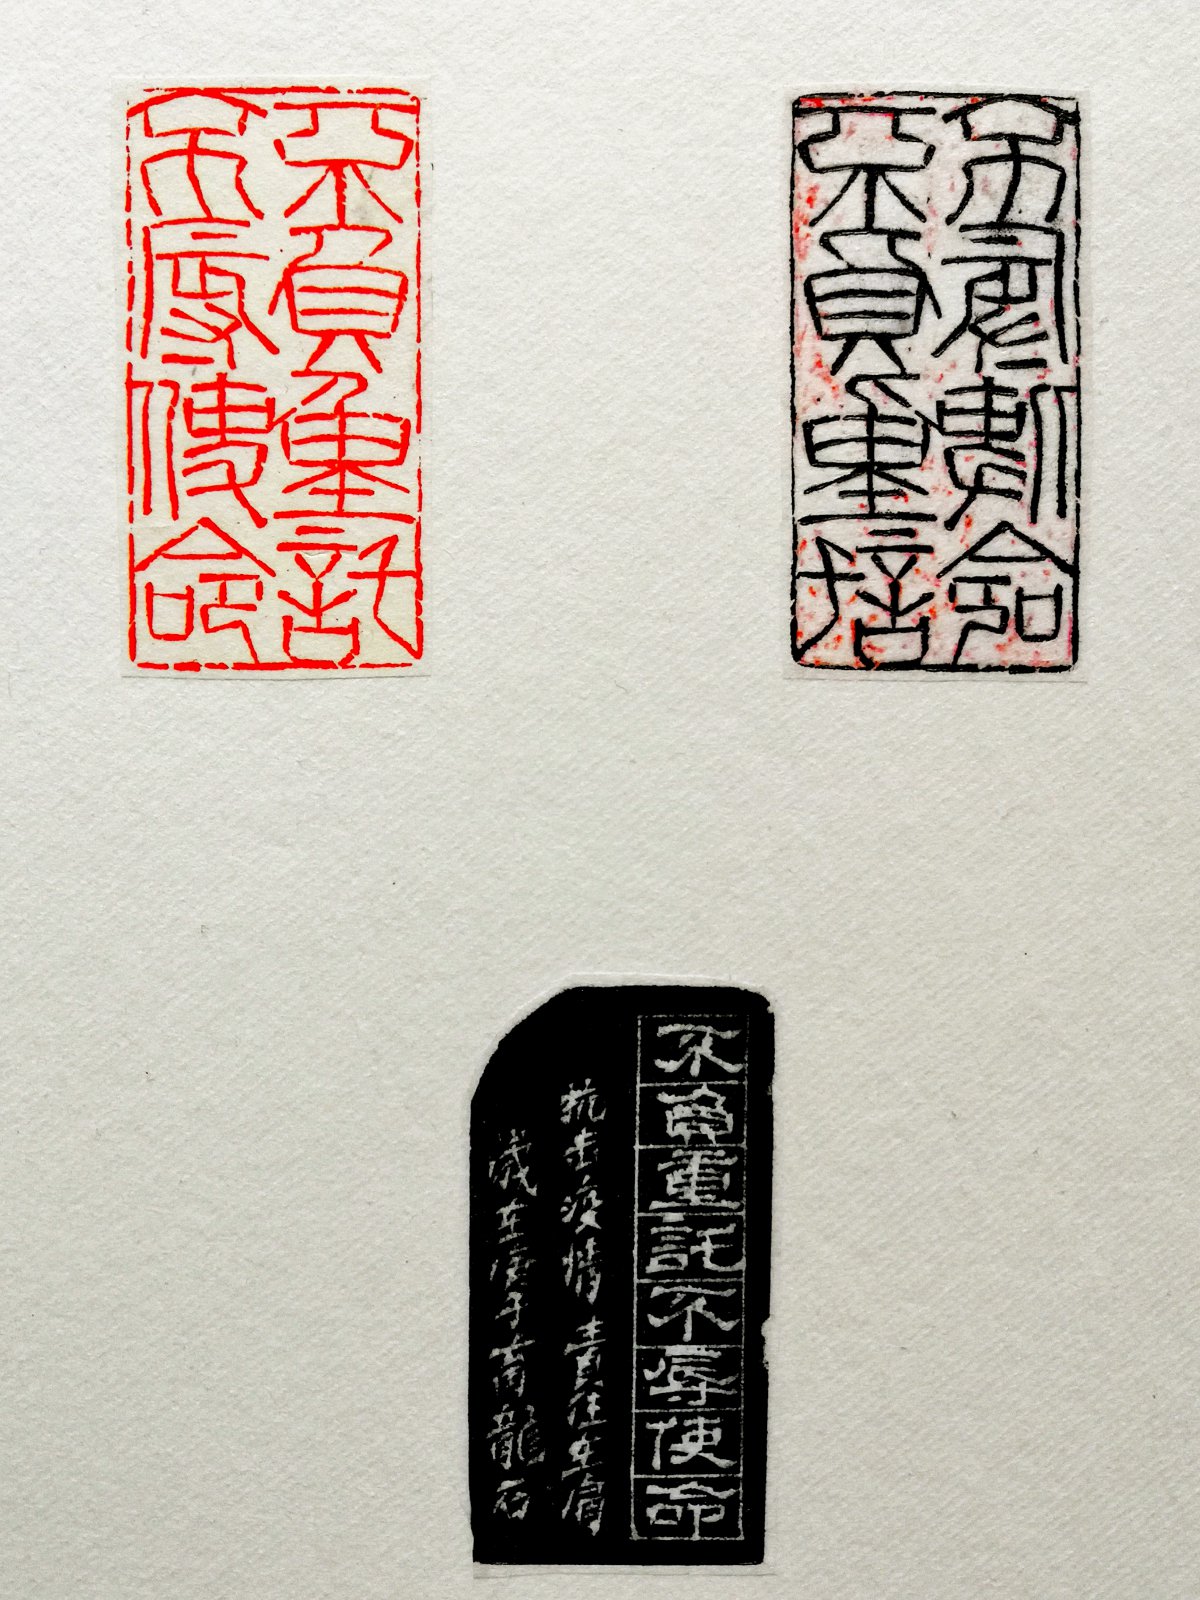 不負重託
不辱使命
不負重託
不辱使命
不負重託不辱使命
抗击疫情責任在肩
歲在庚子龍石